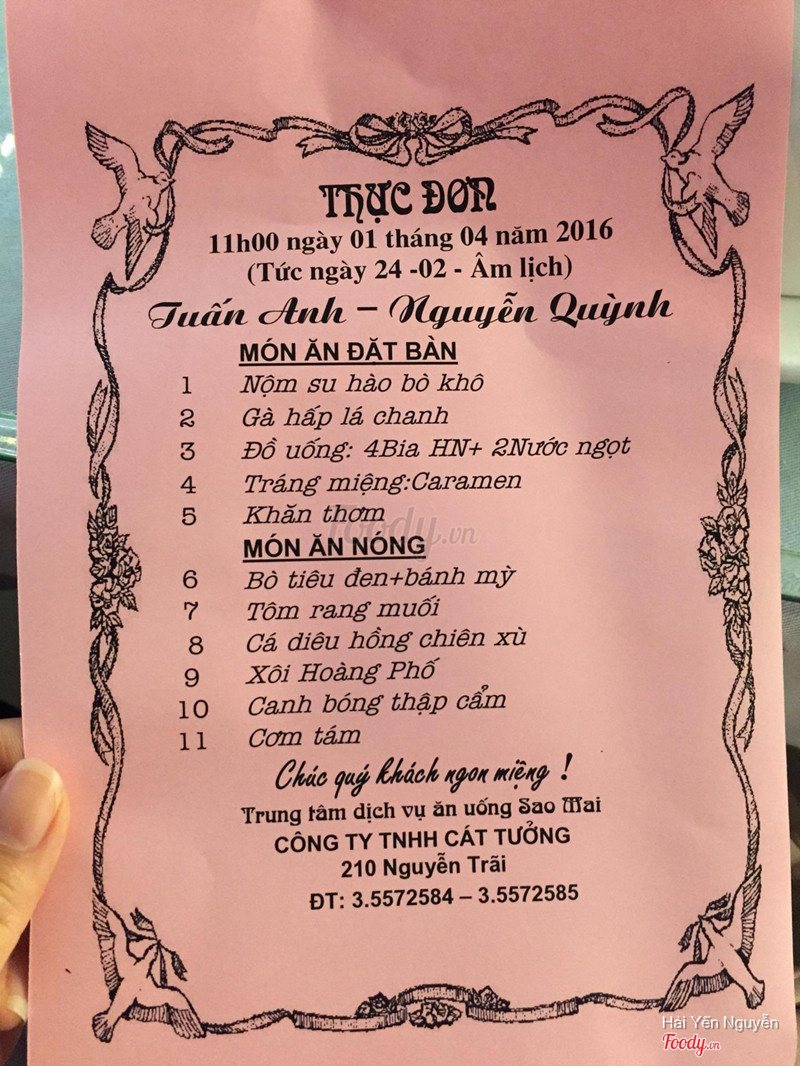 THỰC ĐƠN
11h00 ngày 01 tháng 04 năm 2016
(Tức ngày 24 -02 - Âm lịch)
Tuấn Anh – Nguyễn Quỳnh
MÓN ĂN ĐẶT BÀN
1 Nộm su hào bò khô
2 Gà hấp lá chanh
3 Đồ uống: 4Bia HN+ 2Nước ngọt
4 Tráng miệng:Caramen
5 Khăn thơm
foody.vn
MÓN ĂN NÓNG
6 Bò tiêu đen+bánh mỳ
7 Tôm rang muối
8 Cá diêu hồng chiên xù
9 Xôi Hoàng Phố
10 Canh bóng thập cẩm
11 Cơm tám
Chúc quý khách ngon miệng !
Trung tâm dịch vụ ăn uống Sao Mai
CÔNG TY TNHH CÁT TƯỞNG
210 Nguyễn Trãi
ĐT: 3.5572584 – 3.5572585
Hải Yến Nguyễn
Foody.vn